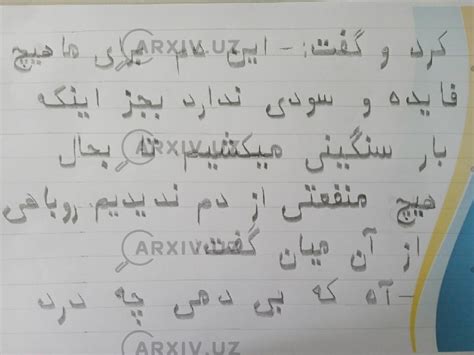 کرد و گفت:- این دم برای ما هیچ
فایده و سودی ندارد بجز اینکه
بار سنگینی میکشیم تا بحال
هیچ منفعتی از دم ندیدیم. روباهی
از آن میان گفت
-آه که بی دمی چه درد
ARXIV.UZ
ARXIV.UZ
ARXIV.UZ
ARXIV.UZ